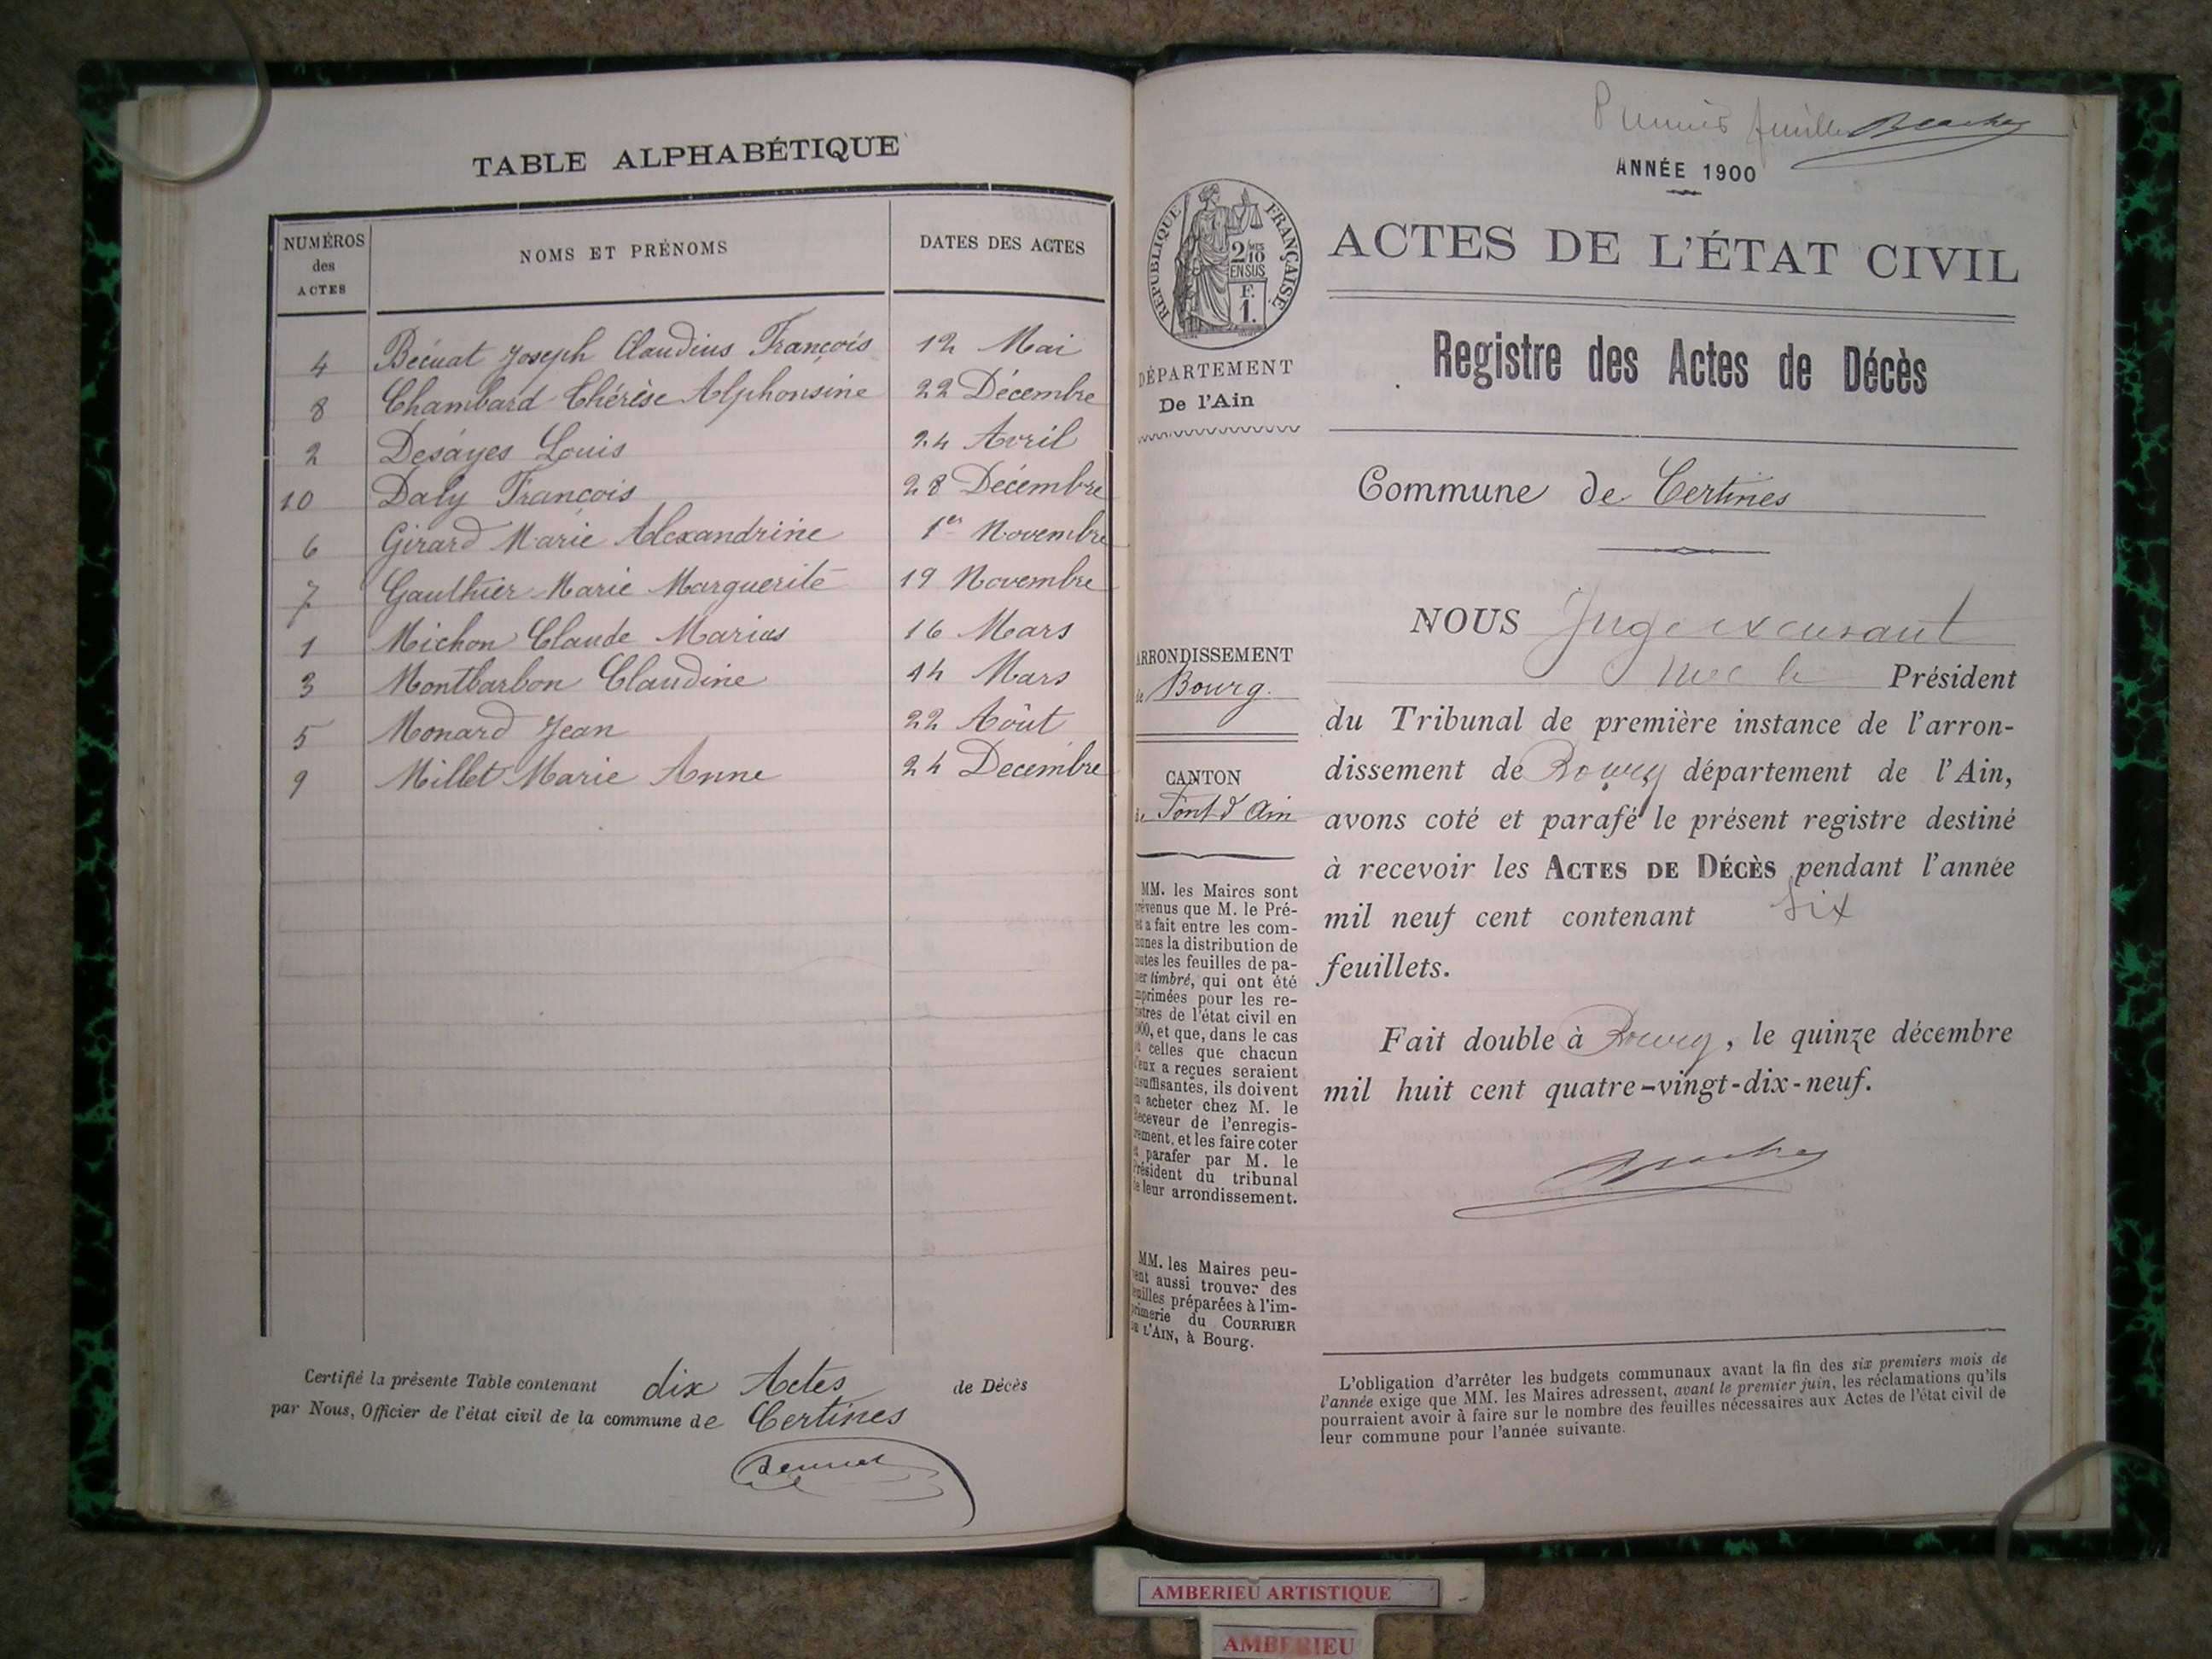 TABLE ALPHABÉTIQUE
NUMÉROS
des
ACTES
NOMS ET PRÉNOMS
DATES DES ACTES
4 Becuat Joseph Claudius François 12 Mai
8 Chambard Thérèse Alphonsine 22 Décembre
2 Desayes Louis 24 Avril
10 Daly François 28 Décembre
6 Girard Marie Alexandrine 1er Novembre
7 Gaulthier Marie Marguerite 19 Novembre
1 Michon Claude Marius 16 Mars
3 Montbarbon Claudine 14 Mars
5 Monard Jean 22 Aôut
9 Millet Marie Anne 24 Decembre
Certifié la présente Table contenant dix Actes de Décès
par Nous, Officier de l'état civil de la commune de Certines
Premier feuillet
ANNÉE 1900
RÉPUBLIQUE FRANÇAISE
2/10 MES
EN SUS
F.
1.
ACTES DE L'ÉTAT CIVIL
Registre des Actes de Décès
DÉPARTEMENT
De l'Ain
Commune de Certines
ARRONDISSEMENT
de Bourg.
CANTON
de Pont d'Ain
MM. les Maires sont
prévenus que M. le Pré-
fet a fait entre les com-
munes la distribution de
toutes les feuilles de pa-
pier timbré, qui ont été
imprimées pour les re-
gistres de l'état civil en
1900, et que, dans le cas
où celles que chacun
d'eux a reçues seraient
insuffisantes, ils doivent
en acheter chez M. le
Receveur de l'enregis-
trement, et les faire coter
et parafer par M. le
Président du tribunal
de leur arrondissement.
MM. les Maires peu-
vent aussi trouver des
feuilles préparées à l'im-
primerie du COURRIER
DE L'AIN, à Bourg.
NOUS Juge
Président
du Tribunal de première instance de l'arron-
dissement de Bourg département de l'Ain,
avons coté et parafé le présent registre destiné
à recevoir les ACTES DE DÉCÈS pendant l'année
mil neuf cent contenant six
feuillets.
Fait double à Bourg, le quinze décembre
mil huit cent quatre-vingt-dix-neuf.
L'obligation d'arrêter les budgets communaux avant la fin des six premiers mois de
l'année exige que MM. les Maires adressent, avant le premier juin, les réclamations qu'ils
pourraient avoir à faire sur le nombre des feuilles nécessaires aux Actes de l'état civil de
leur commune pour l'année suivante.
AMBERIEU ARTISTIQUE
AMBERIEU